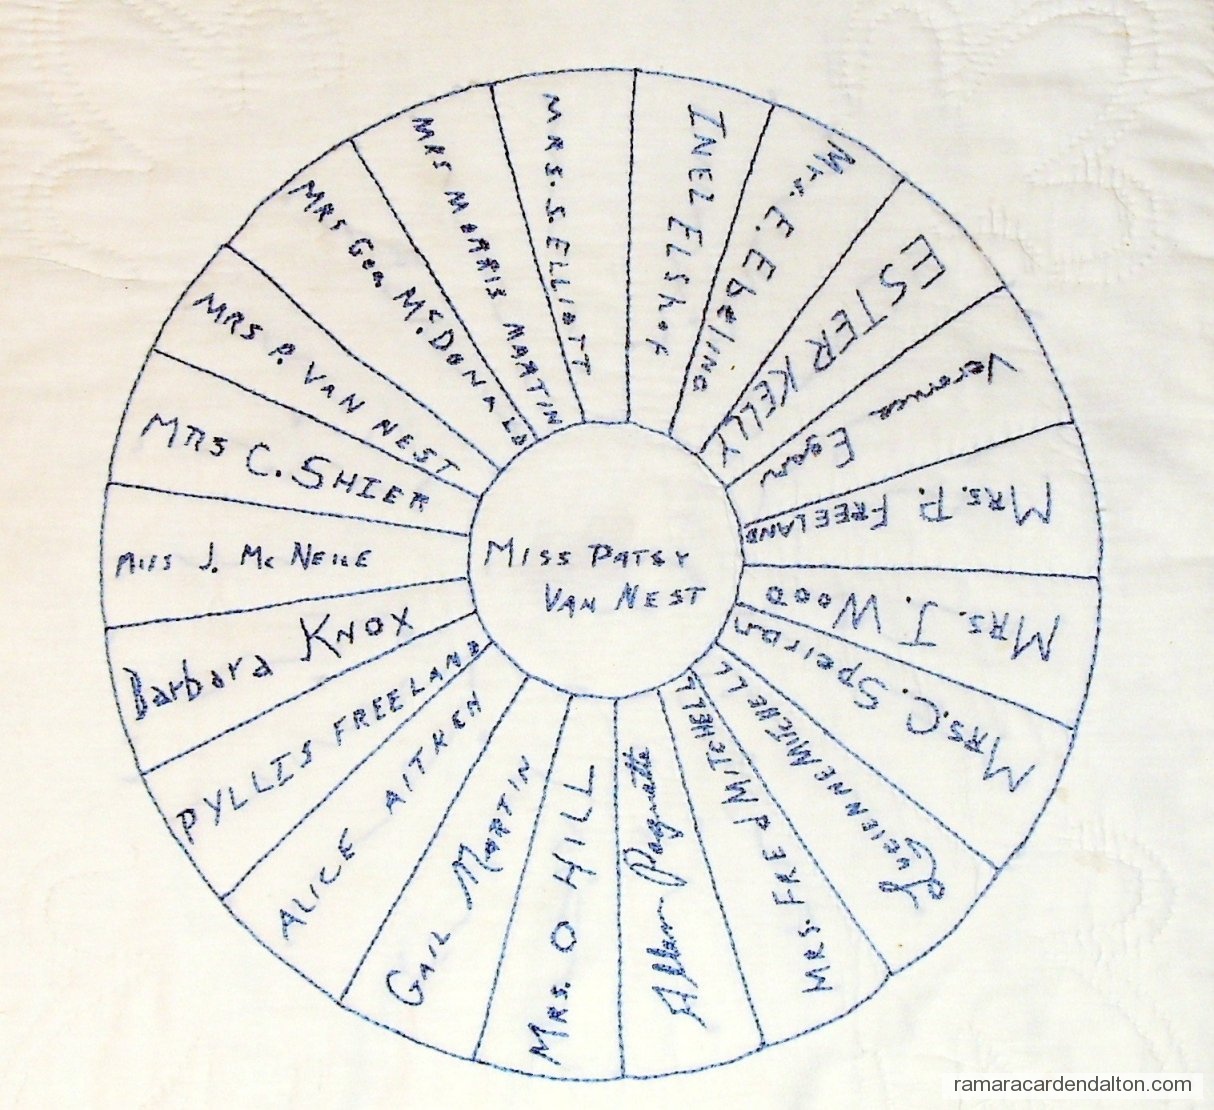 MISS PATSY
VAN NEST
INEZ ELSHOF
Mrs. E. Ebeling
ESTER KELLY
Veronica Egan
MRS. P. FREELAND
MRS. J. WOOD
MRS. C. Speiran
LUCIENNE MITCHELL
MRS. FRED MITCHELL
Allan Paquette
MRS. O HILL
GAIL MARTIN
ALICE AITKEN
PYLLIS FREELAND
Barbara KNOX
MISS J. Mc NEILE
MRS C. SHIER
MRS P. VAN NEST
MRS GEO. McDONALD
MRS MORRIS MARTIN
MRS. S. ELLIOTT
ramaracardendalton.com